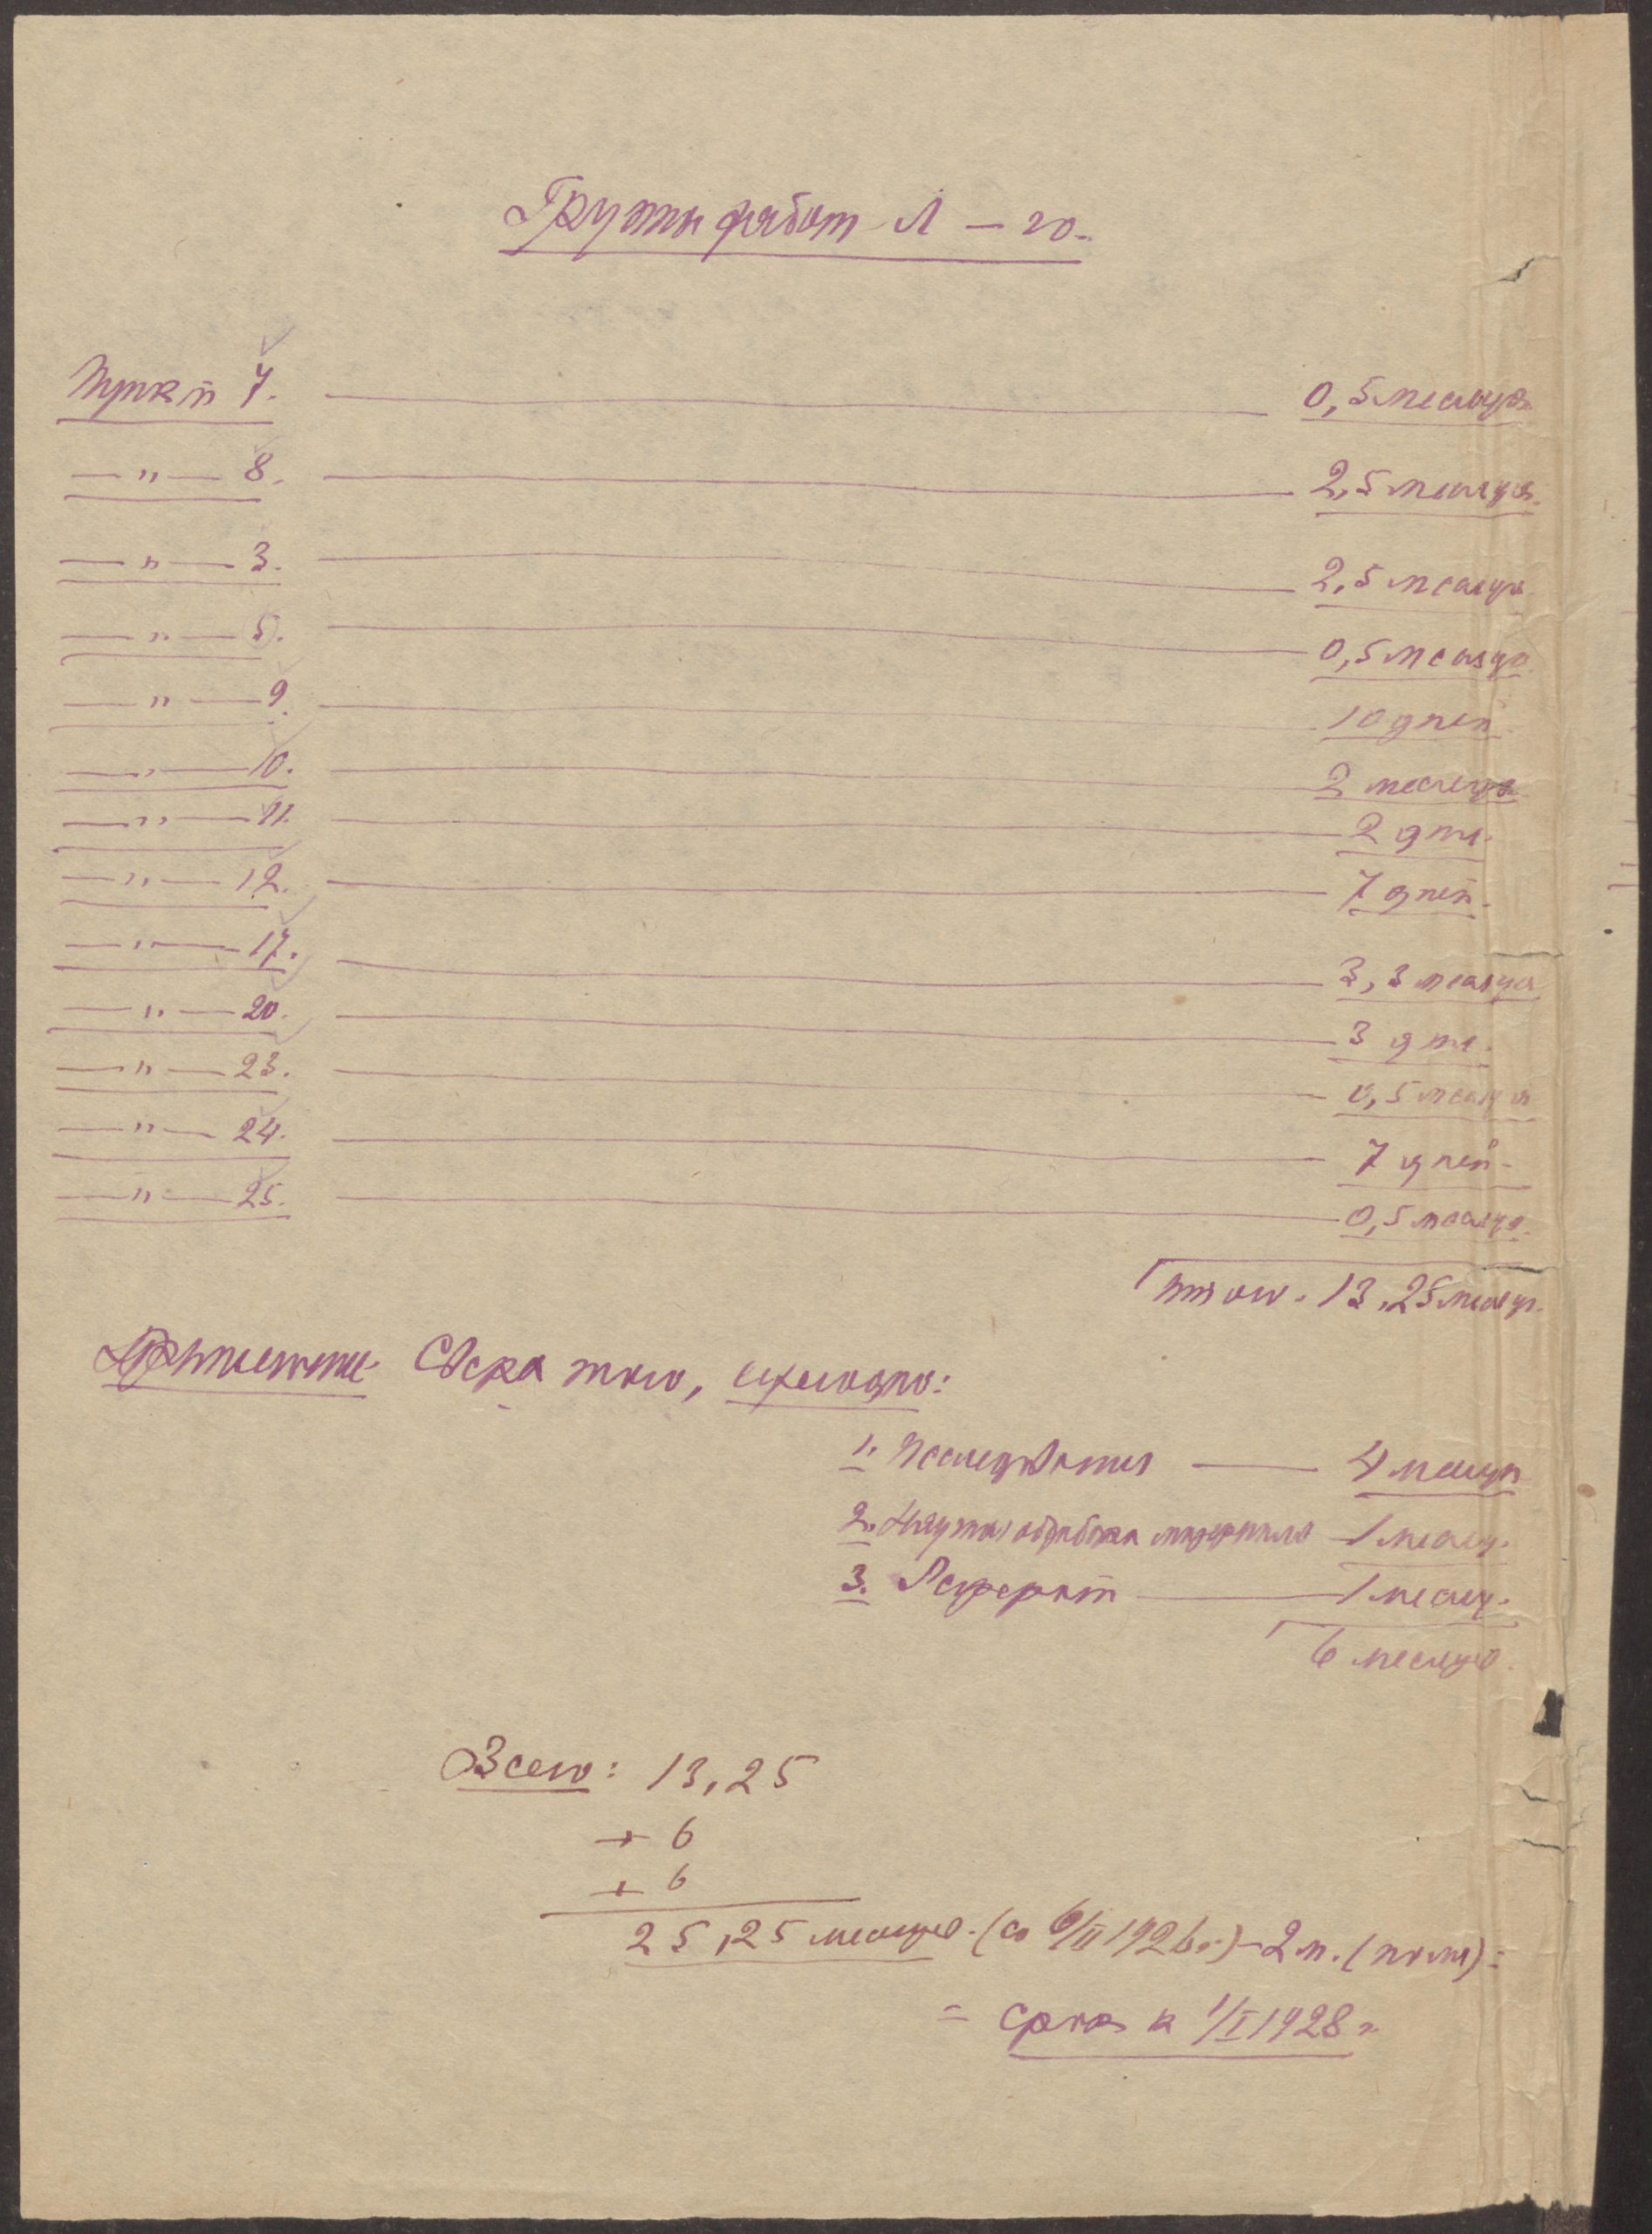 Группа работ Л – 20.
Пункт 7. — 0,5 месяца
— " — 8. — 2,5 месяца.
— " — 3. — 2,5 месяца
— " — 5. — 0,5 месяца
— " — 9. — 10 дней
— " — 10. — 2 месяца
— " — 11. — 2 дня.
— " — 12. — 7 дней.
— " — 17. — 3,3 месяца
— " — 20. — 3 дня.
— " — 23. — 0,5 месяца
— " — 24. — 7 дней.
— " — 25. — 0,5 месяца.
Итого. 13,25 месяц.
Сверх того, ежегодно:
1. Исследования — 4 месяца
2. обработка материала 1 месяц.
3. Реферат — 1 месяц.
6 месяцев.
Всего: 13,25
+ 6
+ 6
25,25 месяцев. (со 6/II 1926 г.) – 2 м. =
= срок к 1/I 1928 г.